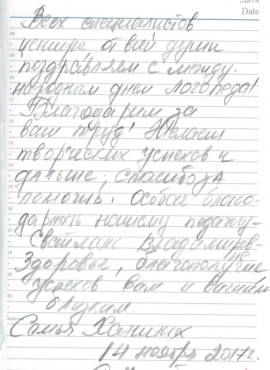 Дата
Всех специалистов
центра от всей души
поздравляем с между-
народным днем логопеда!
Благодарим за
ваш труд! Желаем
творческих успехов и
дальше, спасибо за
помощь. Особая благо-
дарность нашему педагогу-
Светлане Владимиров-
не
Здоровья, благополучия
успехов вам и вашим
близким.
Семья Ханиных
14 ноября 2017г.